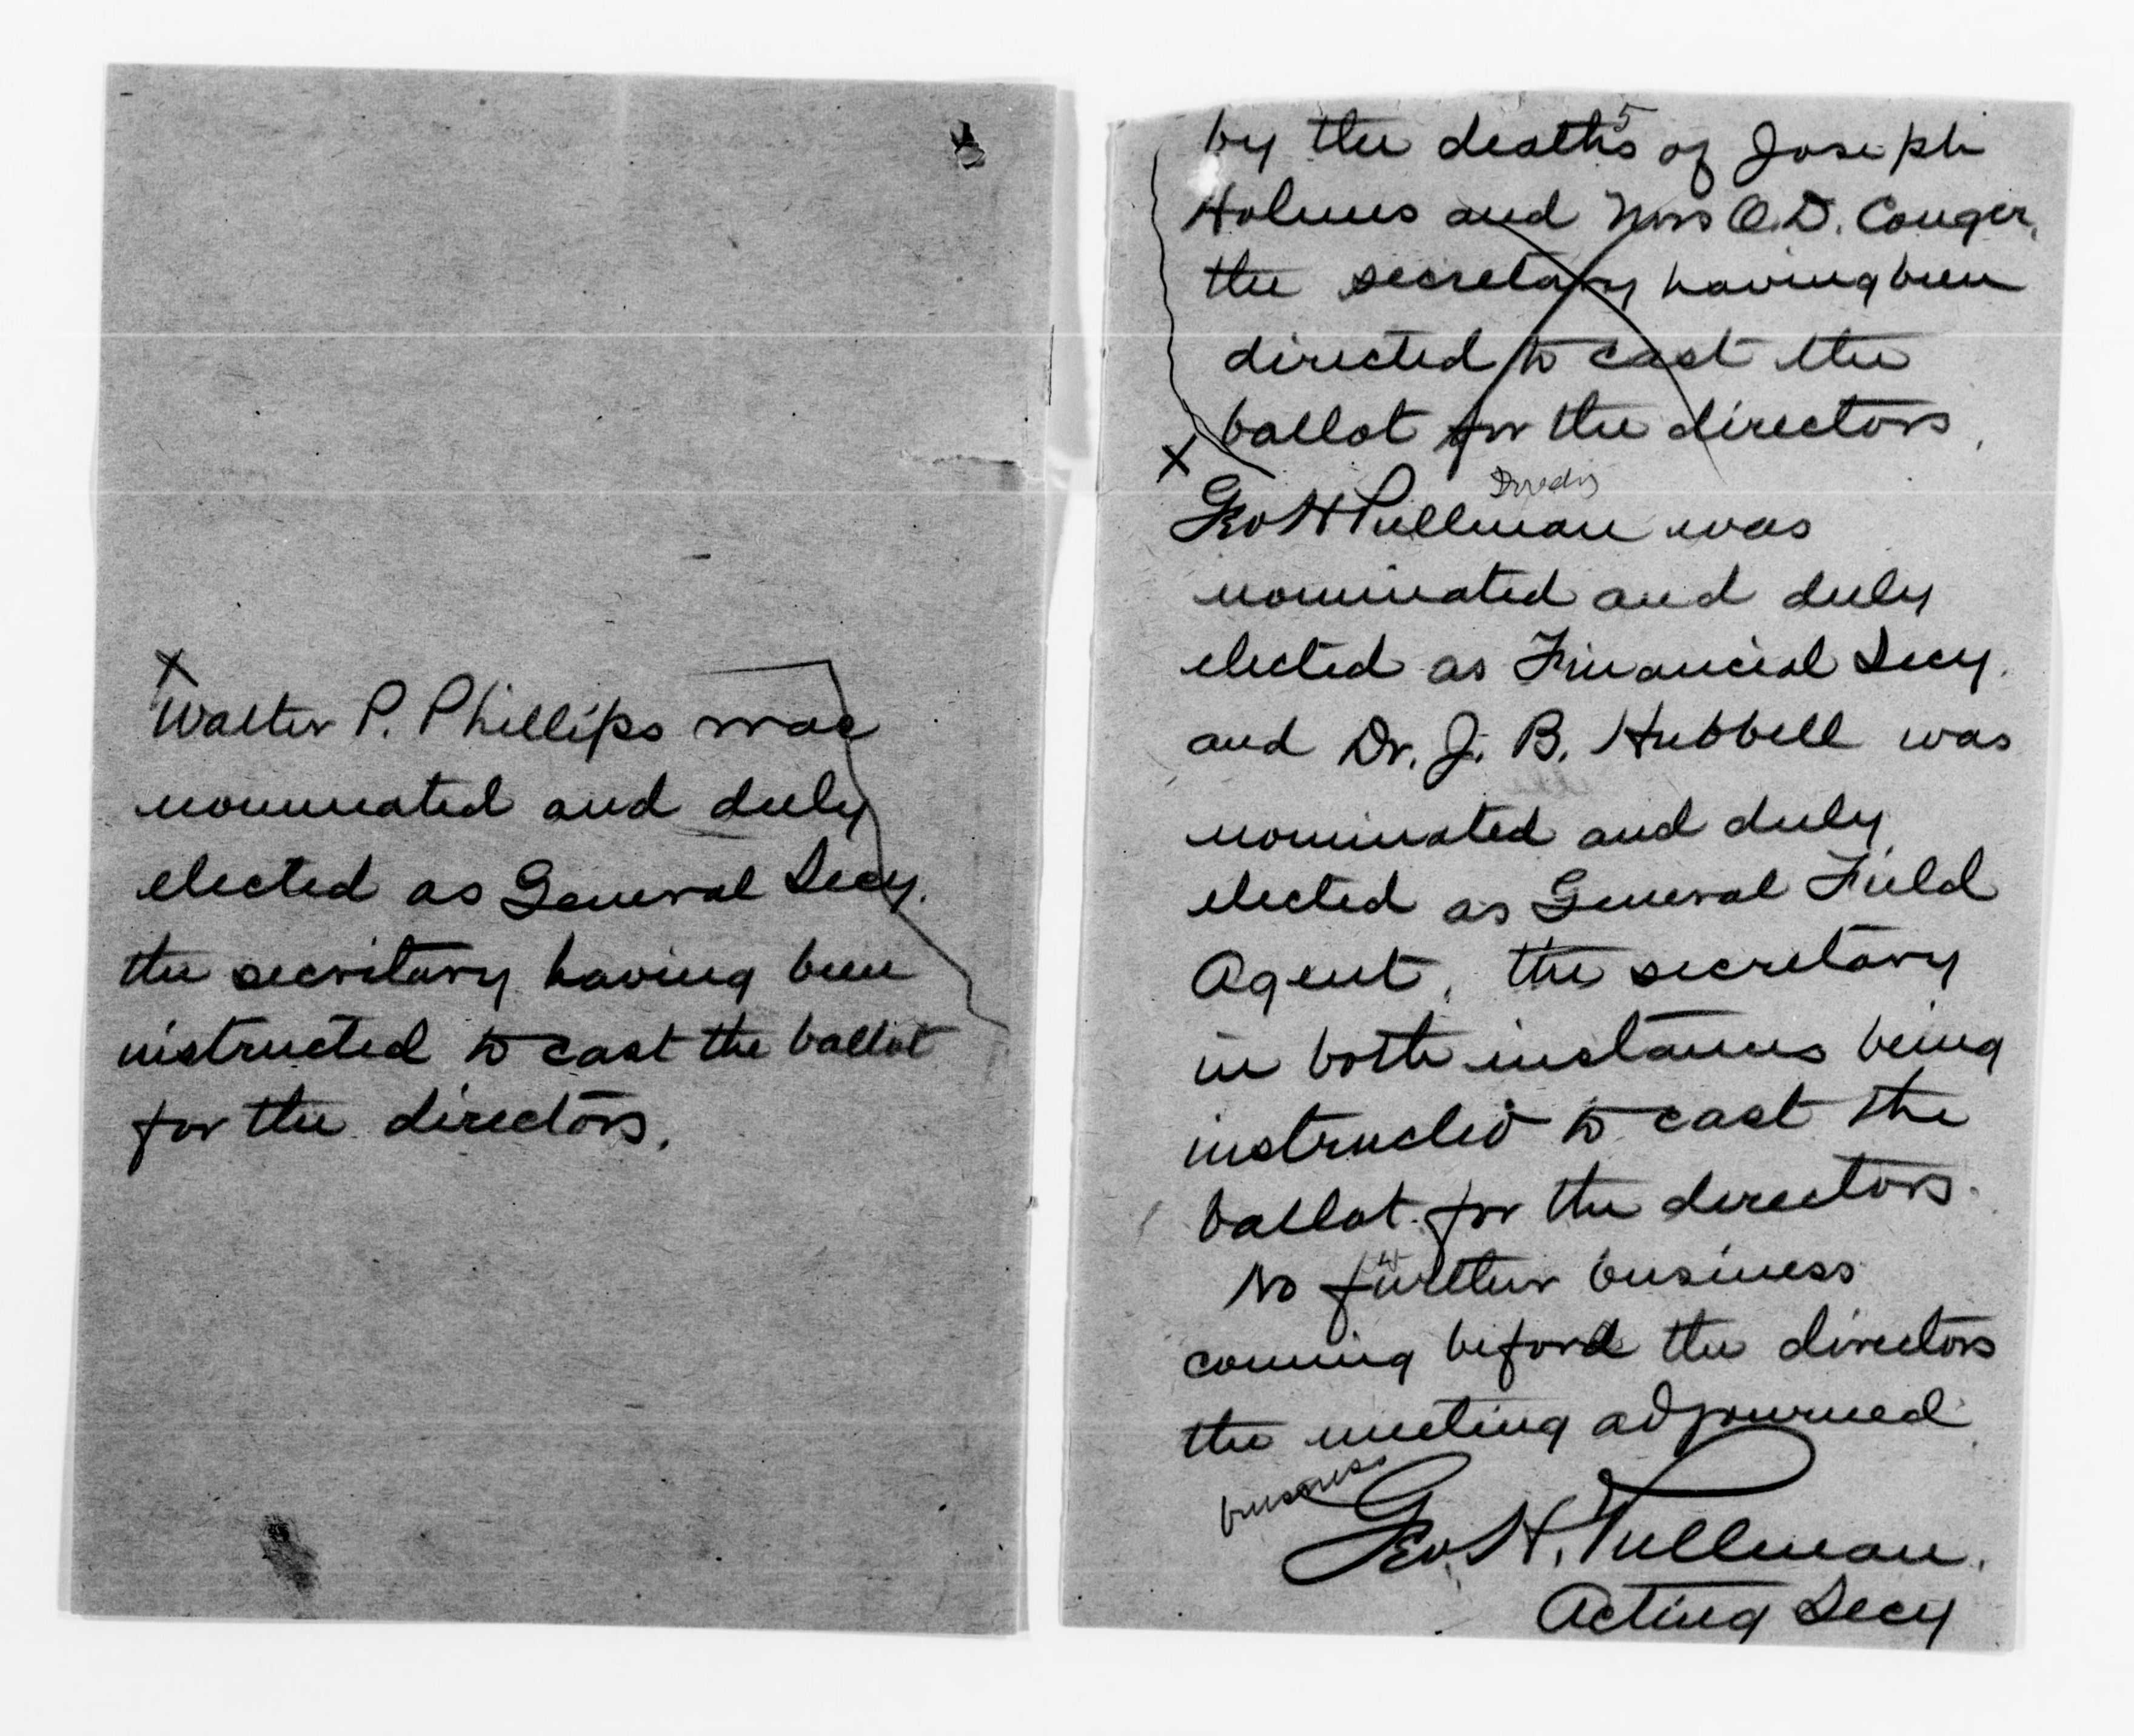 X
Walter P. Phillips was
nominated and duly
elected as General Secy.
the secretary having been
instructed to cast the ballot
for the directors.
by the deaths of Joseph
Holmes and Mrs O.D. Conger,
the secretary having been
directed to cast the
ballot for the directors.
X
Geo H Pullman was
nominated and duly
elected as Financial Secy.
and Dr. J. B. Hubbell was
nominated and duly
elected as General Field
Agent, the secretary
in both instances being
instructed to cast the
ballot for the directors.
No further business
coming before the directors
the meeting adjourned.
business
Geo. H. Pullman.
Acting Secy